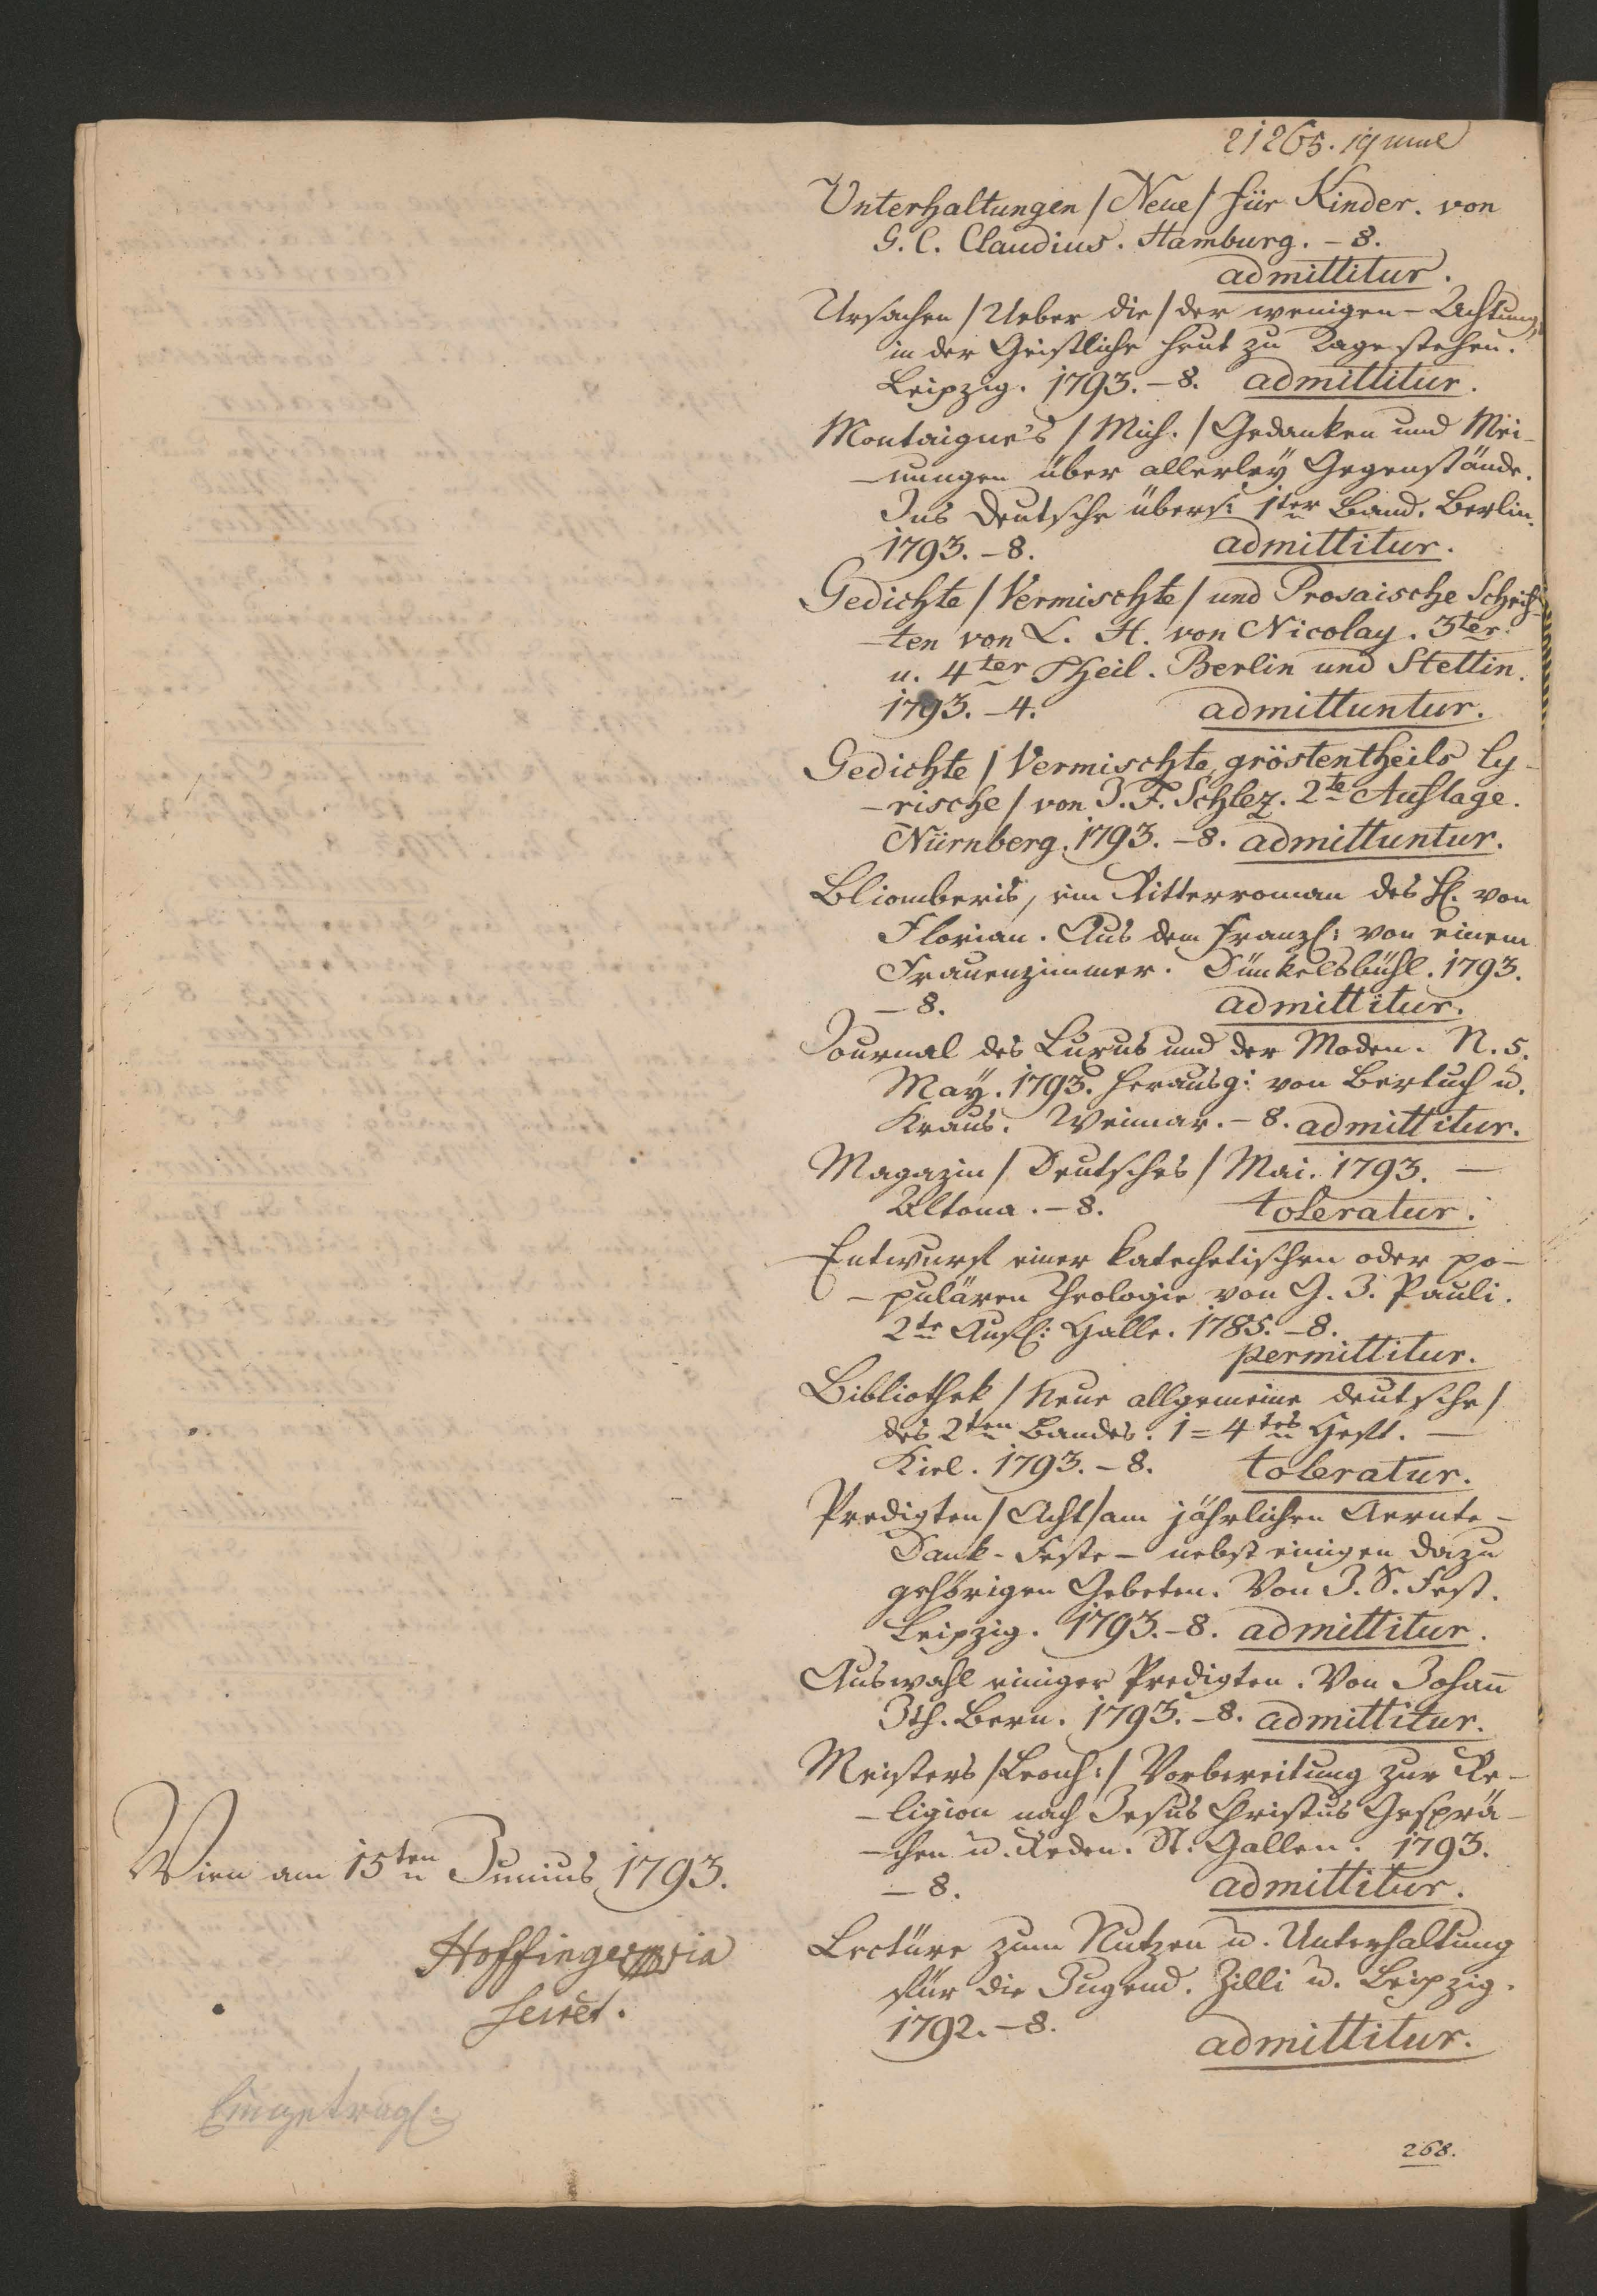 21265. 19 Junÿ
Unterhaltungen /Neue/ für Kinder. von
G. C. Claudius. Hamburg. – 8.
admittitur.
Ursachen /Ueber die/ der wenigen – Achtung,
in der Geistliche heut zu Tage stehen.
Leipzig. 1793. – 8. admittitur.
Montaigne's /Mich./ Gedanken und Mei-
-nungen über allerleÿ Gegenstände.
Ins Deutsche übers: 1ter Band. Berlin.
1793. – 8. admittitur.
Gedichte /Vermischte/ und Prosaische Schrif-
-ten von L. H. von Nicolay. 3ter
u. 4ter Theil. Berlin und Stettin.
1793. – 4. admittuntur.
Gedichte /Vermischte, gröstentheils ly-
-rische/ von J. F. Schlez. 2te Auflage.
Nürnberg. 1793. – 8. admittuntur.
Bliomberis, ein Ritterroman des H. von
Florian. Aus dem Franz: von einem
Frauenzimmer. Dünkelsbühl. 1793.
– 8. admittitur.
Journal des Luxus und der Moden. N. 5.
Maÿ. 1793. herausg: von Bertuch u.
Kraus. Weimar. – 8. admittitur.
Magazin /Deutsches/ Mai. 1793. —
Altona. – 8. toleratur.
Entwurf einer katechetischen oder po-
-pulären Theologie von G. J. Pauli.
2te Aufl: Halle. 1785. – 8.
permittitur.
Bibliothek /Neue allgemeine deutsche/
des 2ten Bandes. 1 = 4tes Heft. —
Kiel. 1793. – 8. toleratur.
Predigten /Acht/ am jährlichen Aernte-
Dank-Feste – nebst einigen dazu
gehörigen Gebeten. Von J. S. Fest.
Leipzig. 1793. – 8. admittitur.
Auswahl einiger Predigten. Von Johan̄
Ith. Bern. 1793. – 8. admittitur.
Meisters /Leonh:/ Vorbereitung zur Re-
-ligion nach Jesus Christus Gesprä-
-chen u. Reden. St. Gallen. 1793.
– 8. admittitur.
Lectüre zum Nutzen u. Unterhaltung
für die Jugend. Zilli u. Leipzig.
1792. – 8.
admittitur.
Wien am 15ten Junius 1793.
Hoffinger
Secret.
Eingetrag:
268.